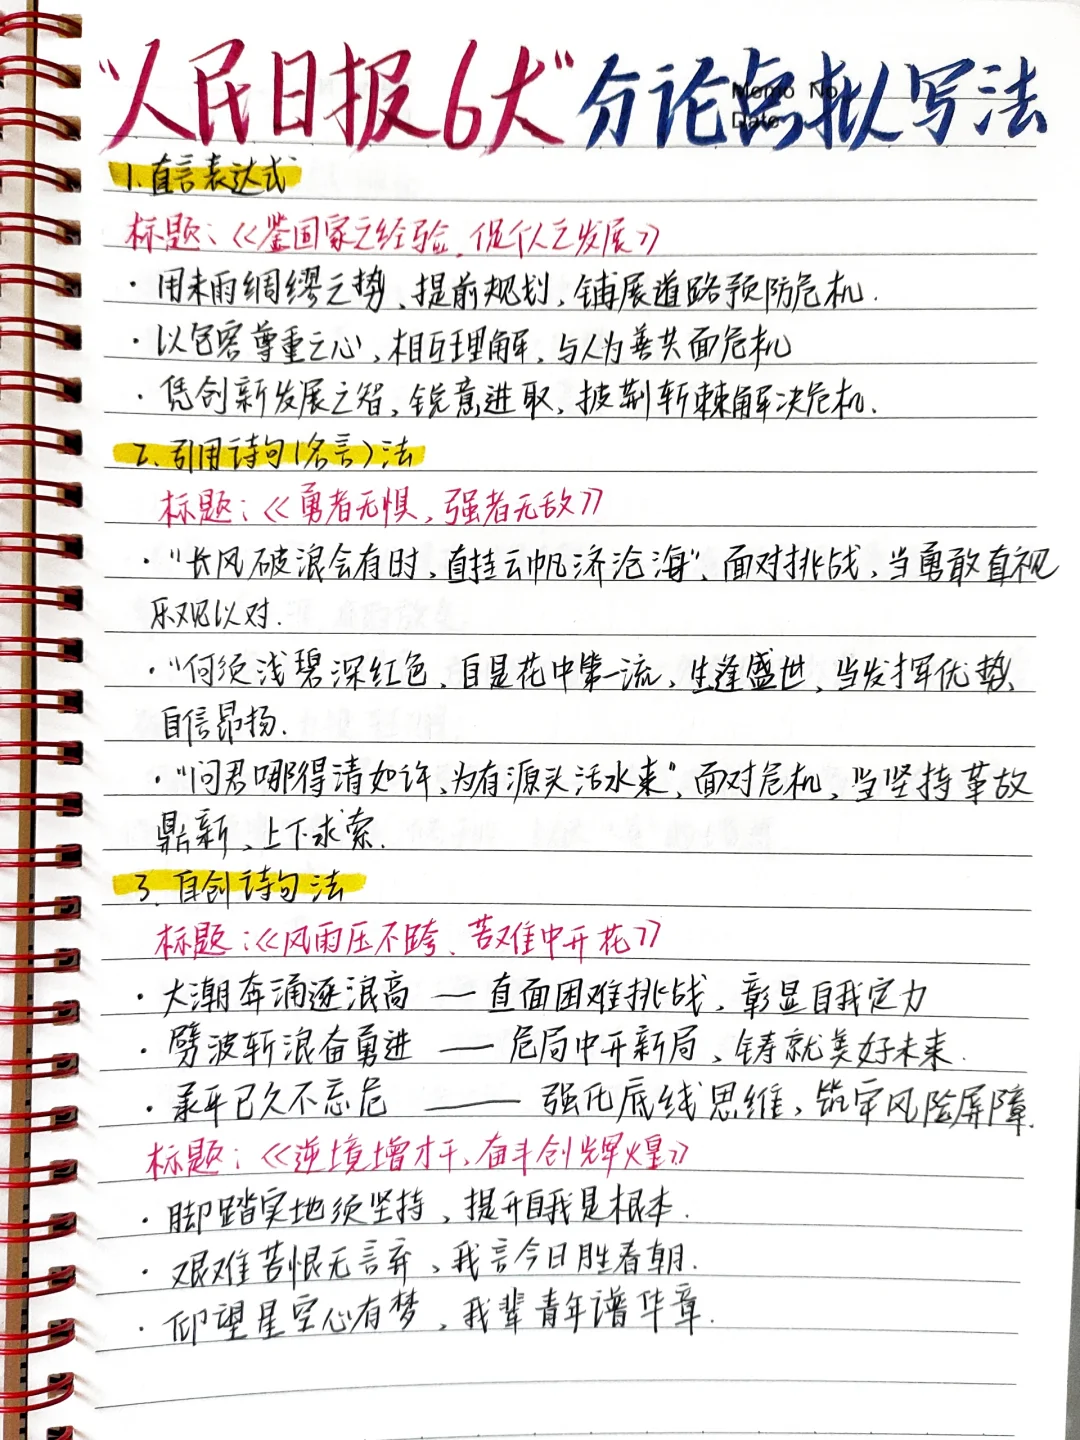 "人民日报6大"分论点拟写法
Memo No.
Date
1.直言表达式
标题:《鉴国家之经验、促个人之发展》
·用未雨绸缪之势、提前规划、铺展道路预防危机.
·以包容尊重之心,相互理解、与人为善共面危机
·凭创新发展之智,锐意进取、披荆斩棘解决危机.
2.引用诗句(名言)法
标题:《勇者无惧,强者无敌》
·"长风破浪会有时,直挂云帆济沧海",面对挑战,当勇敢直视
乐观以对.
·"何须浅碧深红色,自是花中第一流,生逢盛世,当发挥优势、
自信昂扬.
·"问君哪得清如许,为有源头活水来",面对危机,当坚持革故
鼎新、上下求索.
3.自创诗句法
标题:《风雨压不跨、苦难中开花》
·大潮奔涌逐浪高 — 直面困难挑战,彰显自我定力
·劈波斩浪奋勇进 — 危局中开新局,铸就美好未来.
·承平已久不忘危 — 强化底线思维,筑牢风险屏障.
标题:《逆境增才干,奋斗创辉煌》
·脚踏实地须坚持,提升自我是根本.
·艰难苦恨无言弃,我言今日胜春朝.
·仰望星空心有梦,我辈青年谱华章.